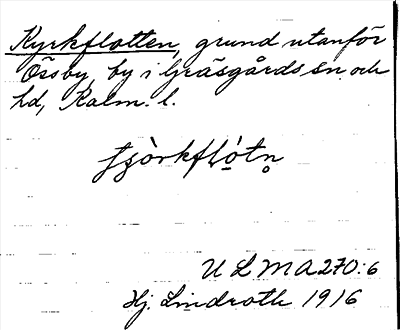 Kyrkflotten, grund utanför
Össby, by i Gräsgårds sn och
hd, Kalm. l.
tjòrkflo̠tn̥
U L M A 270:6
Hj. Lindroth 1916